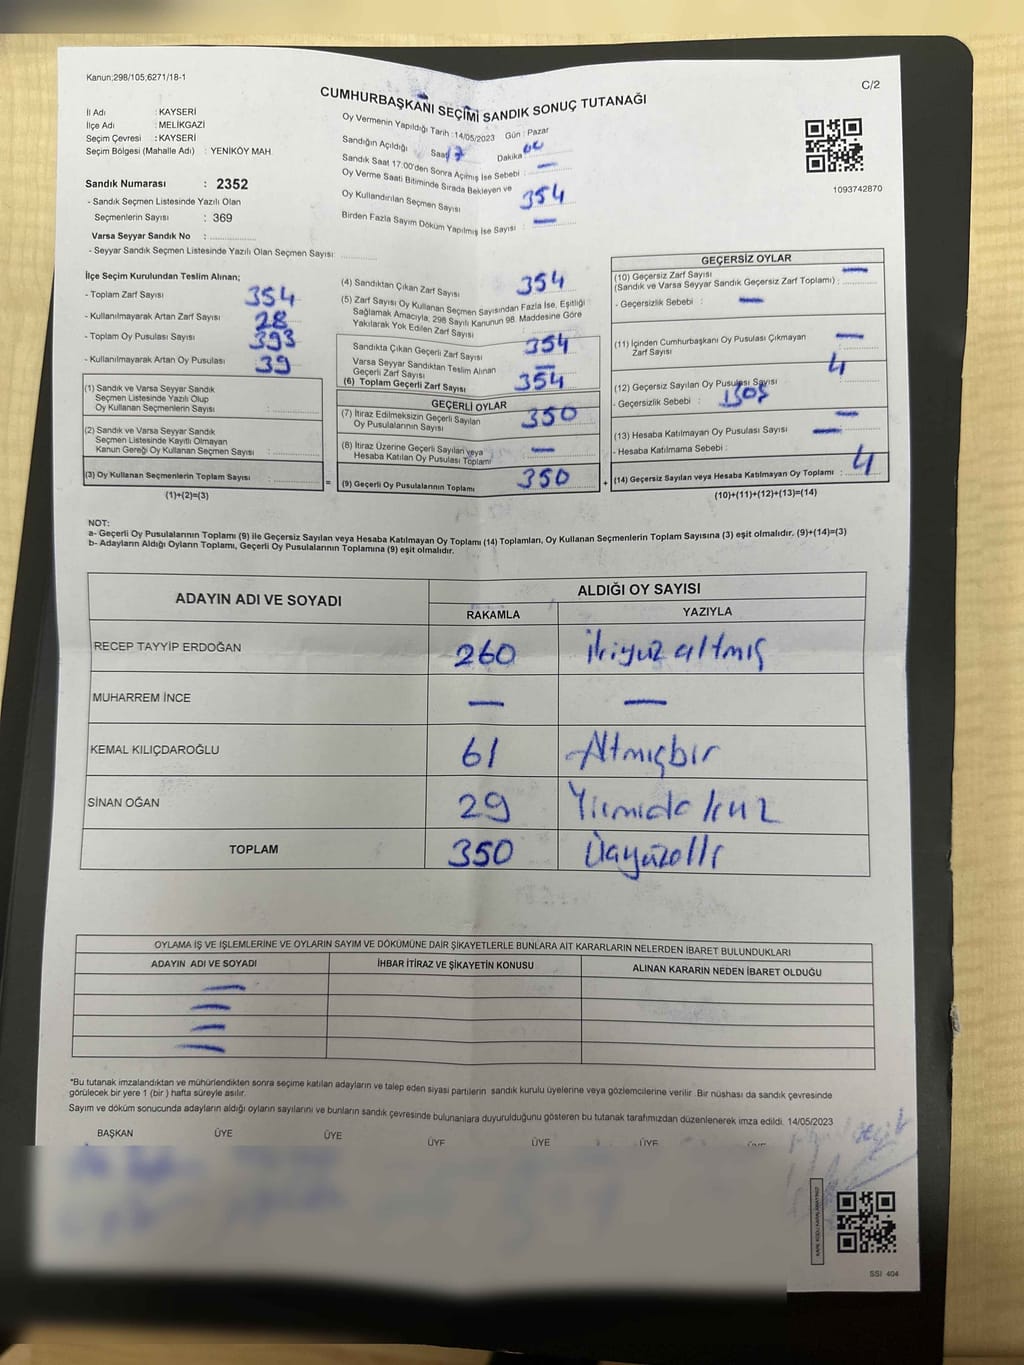 Kanun;298/105,6271/18-1
C/2
CUMHURBAŞKANI SEÇİMİ SANDIK SONUÇ TUTANAĞI
İl Adı : KAYSERİ
İlçe Adı : MELİKGAZİ
Seçim Çevresi : KAYSERİ
Seçim Bölgesi (Mahalle Adı) : YENİKÖY MAH.
Sandık Numarası : 2352
- Sandık Seçmen Listesinde Yazılı Olan
Seçmenlerin Sayısı : 369
Varsa Seyyar Sandık No :
- Seyyar Sandık Seçmen Listesinde Yazılı Olan Seçmen Sayısı :
Oy Vermenin Yapıldığı Tarih :14/05/2023 Gün : Pazar
Sandığın Açıldığı Saat 17 Dakika
Sandık Saat 17.00'den Sonra Açılmış İse Sebebi : —
Oy Verme Saati Bitiminde Sırada Bekleyen ve
Oy Kullandırılan Seçmen Sayısı : 354
Birden Fazla Sayım Döküm Yapılmış İse Sayısı : —
1093742870
İlçe Seçim Kurulundan Teslim Alınan;
- Toplam Zarf Sayısı 354
- Kullanılmayarak Artan Zarf Sayısı 28
- Toplam Oy Pusulası Sayısı 393
- Kullanılmayarak Artan Oy Pusulası 39
(1) Sandık ve Varsa Seyyar Sandık
Seçmen Listesinde Yazılı Olup
Oy Kullanan Seçmenlerin Sayısı :
(2) Sandık ve Varsa Seyyar Sandık
Seçmen Listesinde Kayıtlı Olmayan
Kanun Gereği Oy Kullanan Seçmen Sayısı :
(3) Oy Kullanan Seçmenlerin Toplam Sayısı :
(1)+(2)=(3)
(4) Sandıktan Çıkan Zarf Sayısı 354
(5) Zarf Sayısı Oy Kullanan Seçmen Sayısından Fazla İse, Eşitliği
Sağlamak Amacıyla, 298 Sayılı Kanunun 98. Maddesine Göre
Yakılarak Yok Edilen Zarf Sayısı
Sandıkta Çıkan Geçerli Zarf Sayısı 354
Varsa Seyyar Sandıktan Teslim Alınan
Geçerli Zarf Sayısı —
(6) Toplam Geçerli Zarf Sayısı 354
GEÇERLİ OYLAR
(7) İtiraz Edilmeksizin Geçerli Sayılan
Oy Pusulalarının Sayısı 350
(8) İtiraz Üzerine Geçerli Sayılan veya
Hesaba Katılan Oy Pusulası Toplamı —
(9) Geçerli Oy Pusulalarının Toplamı 350
GEÇERSİZ OYLAR
(10) Geçersiz Zarf Sayısı
(Sandık ve Varsa Seyyar Sandık Geçersiz Zarf Toplamı) : —
- Geçersizlik Sebebi : —
(11) İçinden Cumhurbaşkanı Oy Pusulası Çıkmayan
Zarf Sayısı —
(12) Geçersiz Sayılan Oy Pusulası Sayısı 4
- Geçersizlik Sebebi :
(13) Hesaba Katılmayan Oy Pusulası Sayısı —
- Hesaba Katılmama Sebebi : —
(14) Geçersiz Sayılan veya Hesaba Katılmayan Oy Toplamı : 4
(10)+(11)+(12)+(13)=(14)
NOT:
a- Geçerli Oy Pusulalarının Toplamı (9) ile Geçersiz Sayılan veya Hesaba Katılmayan Oy Toplamı (14) Toplamları, Oy Kullanan Seçmenlerin Toplam Sayısına (3) eşit olmalıdır. (9)+(14)=(3)
b- Adayların Aldığı Oyların Toplamı, Geçerli Oy Pusulalarının Toplamına (9) eşit olmalıdır.
ADAYIN ADI VE SOYADI ALDIĞI OY SAYISI
RAKAMLA YAZIYLA
RECEP TAYYİP ERDOĞAN 260 İkiyüz altmış
MUHARREM İNCE — —
KEMAL KILIÇDAROĞLU 61 Altmışbir
SİNAN OĞAN 29 Yirmidokuz
TOPLAM 350 Üçyüzelli
OYLAMA İŞ VE İŞLEMLERİNE VE OYLARIN SAYIM VE DÖKÜMÜNE DAİR ŞİKAYETLERLE BUNLARA AİT KARARLARIN NELERDEN İBARET BULUNDUKLARI
ADAYIN ADI VE SOYADI İHBAR İTİRAZ VE ŞİKAYETİN KONUSU ALINAN KARARIN NEDEN İBARET OLDUĞU
—
—
—
—
*Bu tutanak imzalandıktan ve mühürlendikten sonra seçime katılan adayların ve talep eden siyasi partilerin sandık kurulu üyelerine veya gözlemcilerine verilir. Bir nüshası da sandık çevresinde
görülecek bir yere 1 (bir) hafta süreyle asılır.
Sayım ve döküm sonucunda adayların aldığı oyların sayılarını ve bunların sandık çevresinde bulunanlara duyurulduğunu gösteren bu tutanak tarafımızdan düzenlenerek imza edildi. 14/05/2023
BAŞKAN ÜYE ÜYE ÜYE ÜYE ÜYE
SSI 404